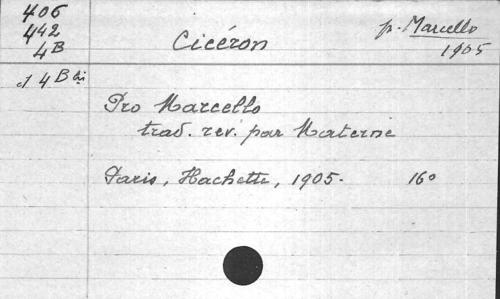 406
442
4B
Cicéron
p. Marcello
1905
d 4 B bis
Pro Marcello
trad. rev. par Materne
Paris, Hachette, 1905. 16º